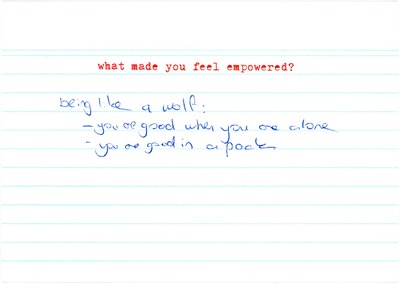 what made you feel empowered?
being like a wolf:
- you're good when you are alone
- you're good in a pack